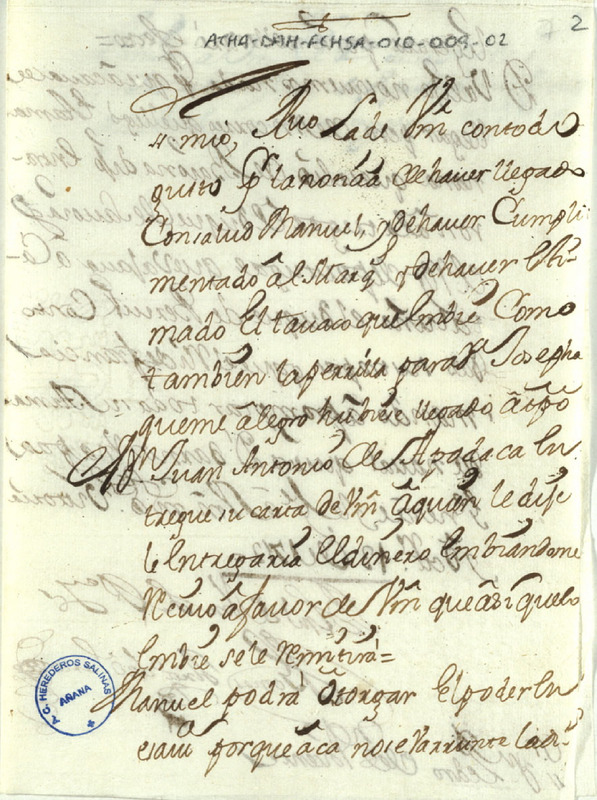 2
ATHA-DAH-FCHSA-010-009-02
Sr mio, Rvo la de Vm con todo
gusto pr la notiçia de haver llegado
Con salud Manuel, y de haver Cumpli
mentado â el Marqs y de haver Esti-
mado El tavaco que Embie Como
tambien la perrilla para Da Josepha
que me âlegro hubiese llegado â tpo
A Dn Juan Antonio de Apodaca En
tregue su carta de Vm â quien le dije
le Entregaria El dinero Embiandome
Recivo â favor de Vm que âsi que lo
Embie se le Remitirá=
Manuel podrá ôtorgar El poder En
esa porque âca no se
P. C. HEREDEROS SALINAS
AÑANA